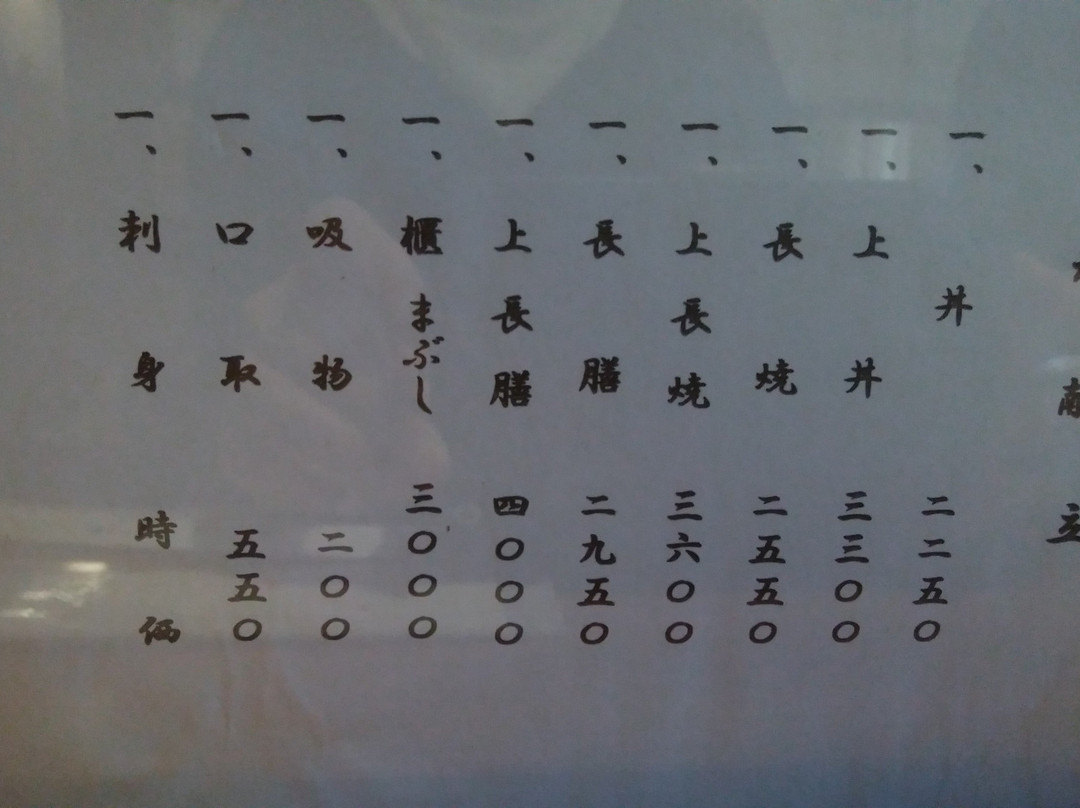 献立
一、丼 二二五〇
一、上丼 三三〇〇
一、長焼 二五五〇
一、上長焼 三六〇〇
一、長膳 二九五〇
一、上長膳 四〇〇〇
一、櫃まぶし 三〇〇〇
一、吸物 二〇〇
一、口取 五五〇
一、刺身 時価